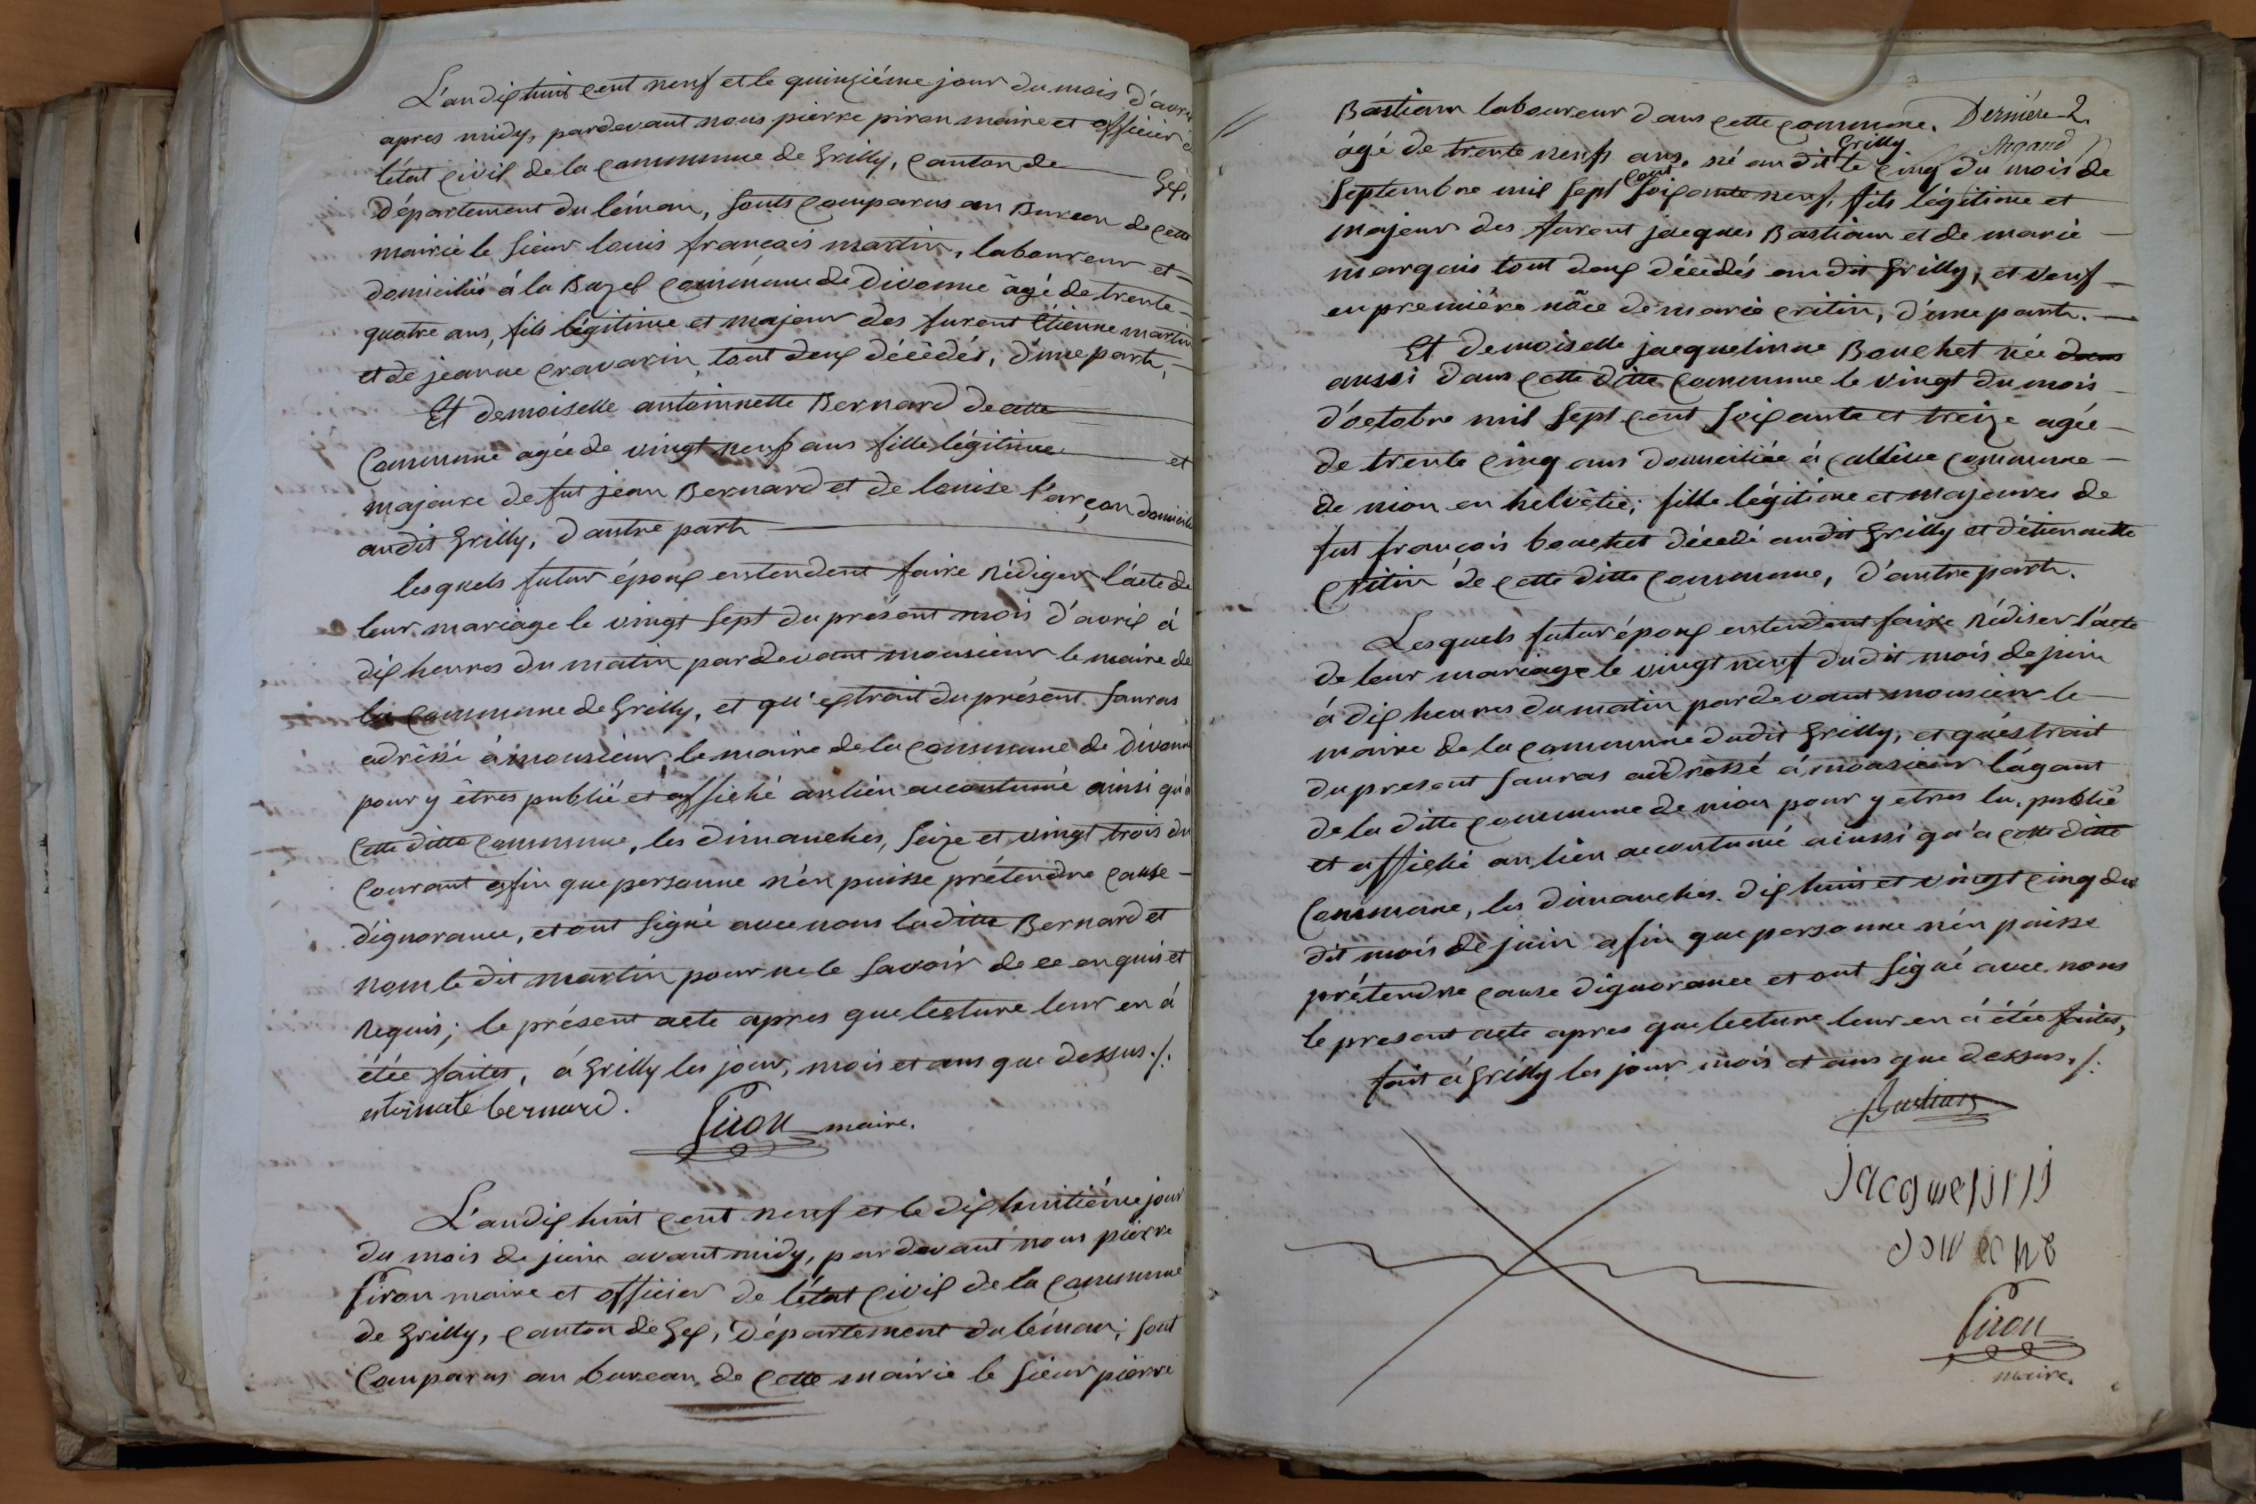 L'an dix huit cent neuf et le quinziéme jour du mois d'avril
apres midy, pardevant nous pierre piron maire et officier d
l'état civil de la commune de Grilly, canton de Gex,
Département du léman, sonts comparus au Bureau de cette
mairie le sieur louis françois martin, laboureur et
domiciliés á la Bazel commune de Divonne âgé de trente
quatre ans, fils légitime et majeur des furent Etienne martin
et de jeanne cravarin, tout deux décédés, d'une part,
Et demoiselle antoinnette Bernard de cette
Commune agée de vingt neuf ans fille légitime et
majeure de fut jean Bernard et de louise l'arçon domicilié
audit Grilly, d'autre part
lesquels futur époux entendent faire Rédiger l'acte de
leur mariage le vingt sept du présent mois d'avril á
dix heures du matin pardevant monsieur le maire de
la commune de Grilly, et qu'extrait du présent sauras
adréssé á monsieur le maire de la commune de divonne
pour y êtres publié et affiché au lieu accoutumé ainsi qu'á
Cette ditte commune, les dimanches, seize et vingt trois du
Courant afin que personne n'en puisse prétendre cause
d'ignorance, et ont signé avec nous la ditte Bernard et
nom le dit martin pour ne le savoir de ce enquis et
Requis; le présent acte apres que lecture leur en á
étée faites, á Grilly les jour, mois et ans que dessus./.
bernard.
Piron maire.
L'an dix huit cent neuf et le dix huitiéme jour
du mois de juin avant midy, pardevant nous pierre
Piron maire et officier de l'état civil de la commune
de Grilly, canton de Gex, Département du léman; sont
Comparus au bureau de cette mairie le sieur pierre
Bastian laboureur dans cette commune. Derniére 2.
âgé de trente neuf ans, né audit Grilly le cinq du mois de
septembre mil sept cent soixante neuf, fils légitime et
majeur des furent jacques Bastian et de marie
marquis tout deux décédés audit Grilly, et veuf
en premiére nôce de marie critin, d'une part.
Et demoiselle jacquelinne Bouchet née dans
aussi dans cette ditte commune le vingt du mois
d'octobre mil sept cent soixante et treize agée
de trente cinq ans domiciliée á commune
de nion en helvêtie; fille légitime et majeures de
fut françois bouchet décédé audit Grilly et d'étiennette
Critin de cette ditte commune, d'autre part.
Lesquels futur époux entendent faire Rédiser l'acte
de leur mariage le vingt neuf dudit mois de juin
á dix heures du matin pardevant monsieur le
maire de la commune dudit Grilly, et qu'estrait
du present sauras addressé á monsieur l'ágant
de la ditte commune de nion pour y etres lu, publié
et affiché au lieu accoutumé ainssi qu'a cette ditte
Commune, les dimanches dix huit et vingt cinq du
dit mois de juin afin que personne n'en puisse
prétendre cause dignorance et ont signé avec nous
le present acte apres que lecture leur en á étée faites,
fait á Grilly les jour mois et ans que dessus./.
Bastian
Piron
maire.